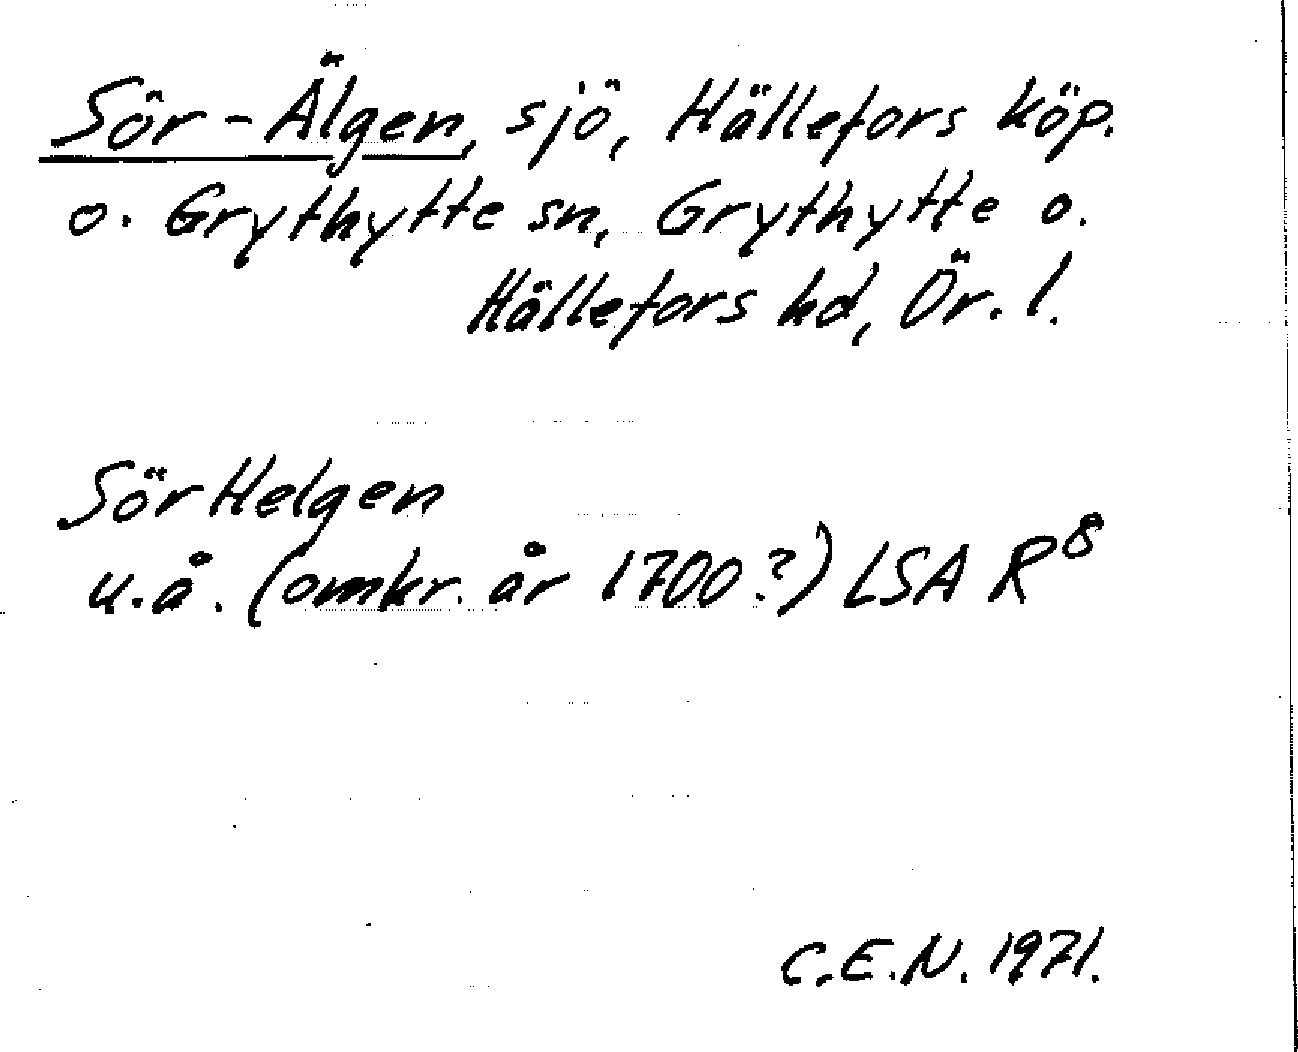 Sör-Älgen, sjö, Hällefors köp.
o. Grythytte sn, Grythytte o.
Hällefors hd, Ör. l.
Sör Helgen
u.å. (omkr. år 1700?) LSA R⁸
C.E.N. 1971.